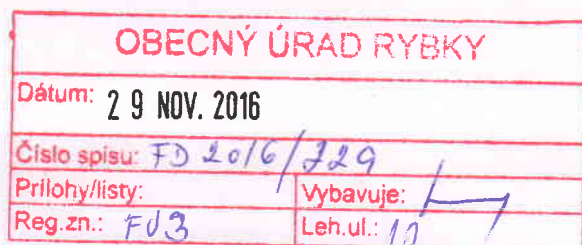 OBECNÝ ÚRAD RYBKY
Dátum: 29 NOV. 2016
Číslo spisu: FD 2016/729
Prílohy/listy: Vybavuje:
Reg.zn.: FJ3 Leh.ul.: 10